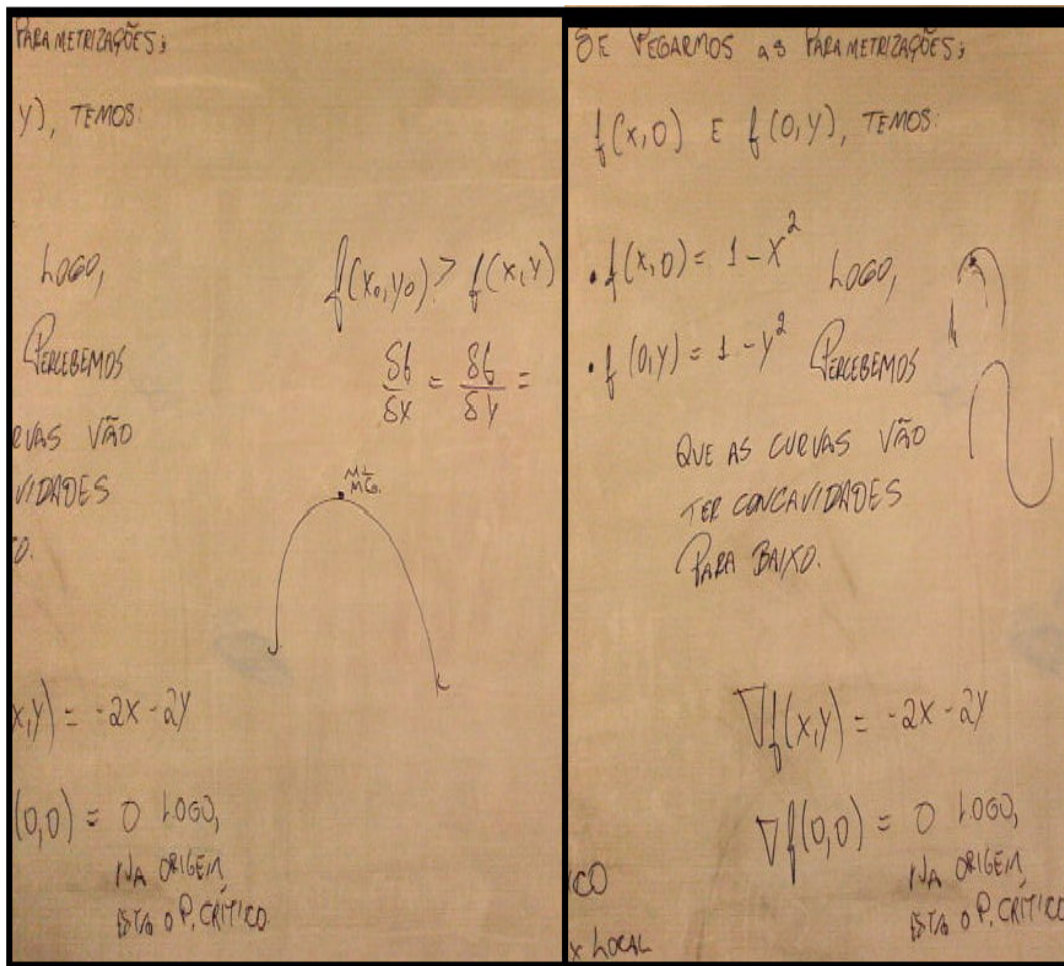 PARAMETRIZAÇÕES;
Y), TEMOS:
LOGO,
PERCEBEMOS
RVAS VÃO
VIDADES
O.
f(x₀,y₀) > f(x,y)
δf/δx = δf/δy =
ML
x,y) = -2x -2y
(0,0) = 0 LOGO,
NA ORIGEM
ESTÁ O P. CRÍTICO.
SE PEGARMOS as PARAMETRIZAÇÕES;
f(x,0) E f(0,y), TEMOS:
• f(x,0) = 1 - x² LOGO,
• f(0,y) = 1 - y² PERCEBEMOS
QUE AS CURVAS VÃO
TER CONCAVIDADES
PARA BAIXO.
∇f(x,y) = -2x -2y
∇f(0,0) = 0 LOGO,
NA ORIGEM
ESTÁ O P. CRÍTICO
CO
x LOCAL